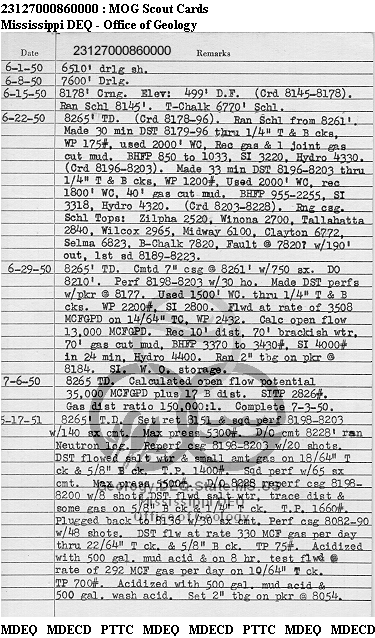 23127000860000 : MOG Scout Cards
Mississippi DEQ - Office of Geology
Date 23127000860000 Remarks
6-1-50 6510' drlg sh.
6-8-50 7600' Drlg.
6-15-50 8178' Crng. Elev: 499' D.F. (Crd 8145-8178).
Ran Schl 8145'. T-Chalk 6770' Schl.
6-22-50 8265' TD. (Crd 8178-96). Ran Schl from 8261'.
Made 30 min DST 8179-96 thru 1/4" T & B cks,
WP 175#, used 2000' WC, Rec gas & 1 joint gas
cut mud. BHFP 850 to 1033, SI 3220, Hydro 4330.
(Crd 8196-8203). Made 33 min DST 8196-8203 thru
1/4" T & B cks, WP 1200#, Used 2000' WC, rec
1800' WC, 40' gas cut mud. BHFP 955-2255, SI
3318, Hydro 4320. (Crd 8203-8228). Rng csg.
Schl Tops: Zilpha 2520, Winona 2700, Tallahatta
2840, Wilcox 2965, Midway 6100, Clayton 6772,
Selma 6823, B-Chalk 7820, Fault @ 7820? w/190'
out, 1st sd 8189-8223.
6-29-50 8265' TD. Cmtd 7" csg @ 8261' w/750 sx. DO
8210'. Perf 8198-8203 w/30 ho. Made DST perfs
w/pkr @ 8177. Used 1500' WC. thru 1/4" T & B
cks. WP 2200#, SI 2800. Flwd at rate of 3508
MCFGPD on 14/64" TC, WP 2432. Calc open flow
13,000 MCFGPD. Rec 10' dist, 70' brackish wtr,
70' gas cut mud, BHFP 3370 to 3430#, SI 4000#
in 24 min, Hydro 4400. Ran 2" tbg on pkr @
8184. SI. W. O. storage.
7-6-50 8265 TD. Calculated open flow potential
35,000 MCFGPD plus 17 B dist. SITP 2826#.
Gas dist ratio 150,000:1. Complete 7-3-50.
5-17-51 8265 T.D. Set ret 8151 & sqd perf 8198-8203
w/140 sx cmt. Max press 5300#. D/O cmt 8228' ran
Neutron log. Reperf csg 8198-8203 w/20 shots.
DST flowed salt wtr & small amt gas on 18/64" T
ck & 5/8" B ck. T.P. 1400#. Sqd perf w/65 sx
cmt. Max press 5500#. D/O 8228 reperf csg 8198-
8200 w/8 shots DST flwd salt wtr, trace dist &
some gas on 5/8" B ck & 1/4" T ck. T.P. 1660#.
Plugged back to 8136 w/30 sx cmt. Perf csg 8082-90
w/48 shots. DST flw at rate 330 MCF gas per day
thru 22/64" T ck. & 5/8" B ck. TP 75#. Acidized
with 500 gal. mud acid & on 8 hr. test flwd @
rate of 292 MCF gas per day on 10/64" T ck.
TP 700#. Acidized with 500 gal. mud acid &
500 gal. wash acid. Set 2" tbg on pkr @ 8054.
MDEQ MDECD PTTC MDEQ MDECD PTTC MDEQ MDECD